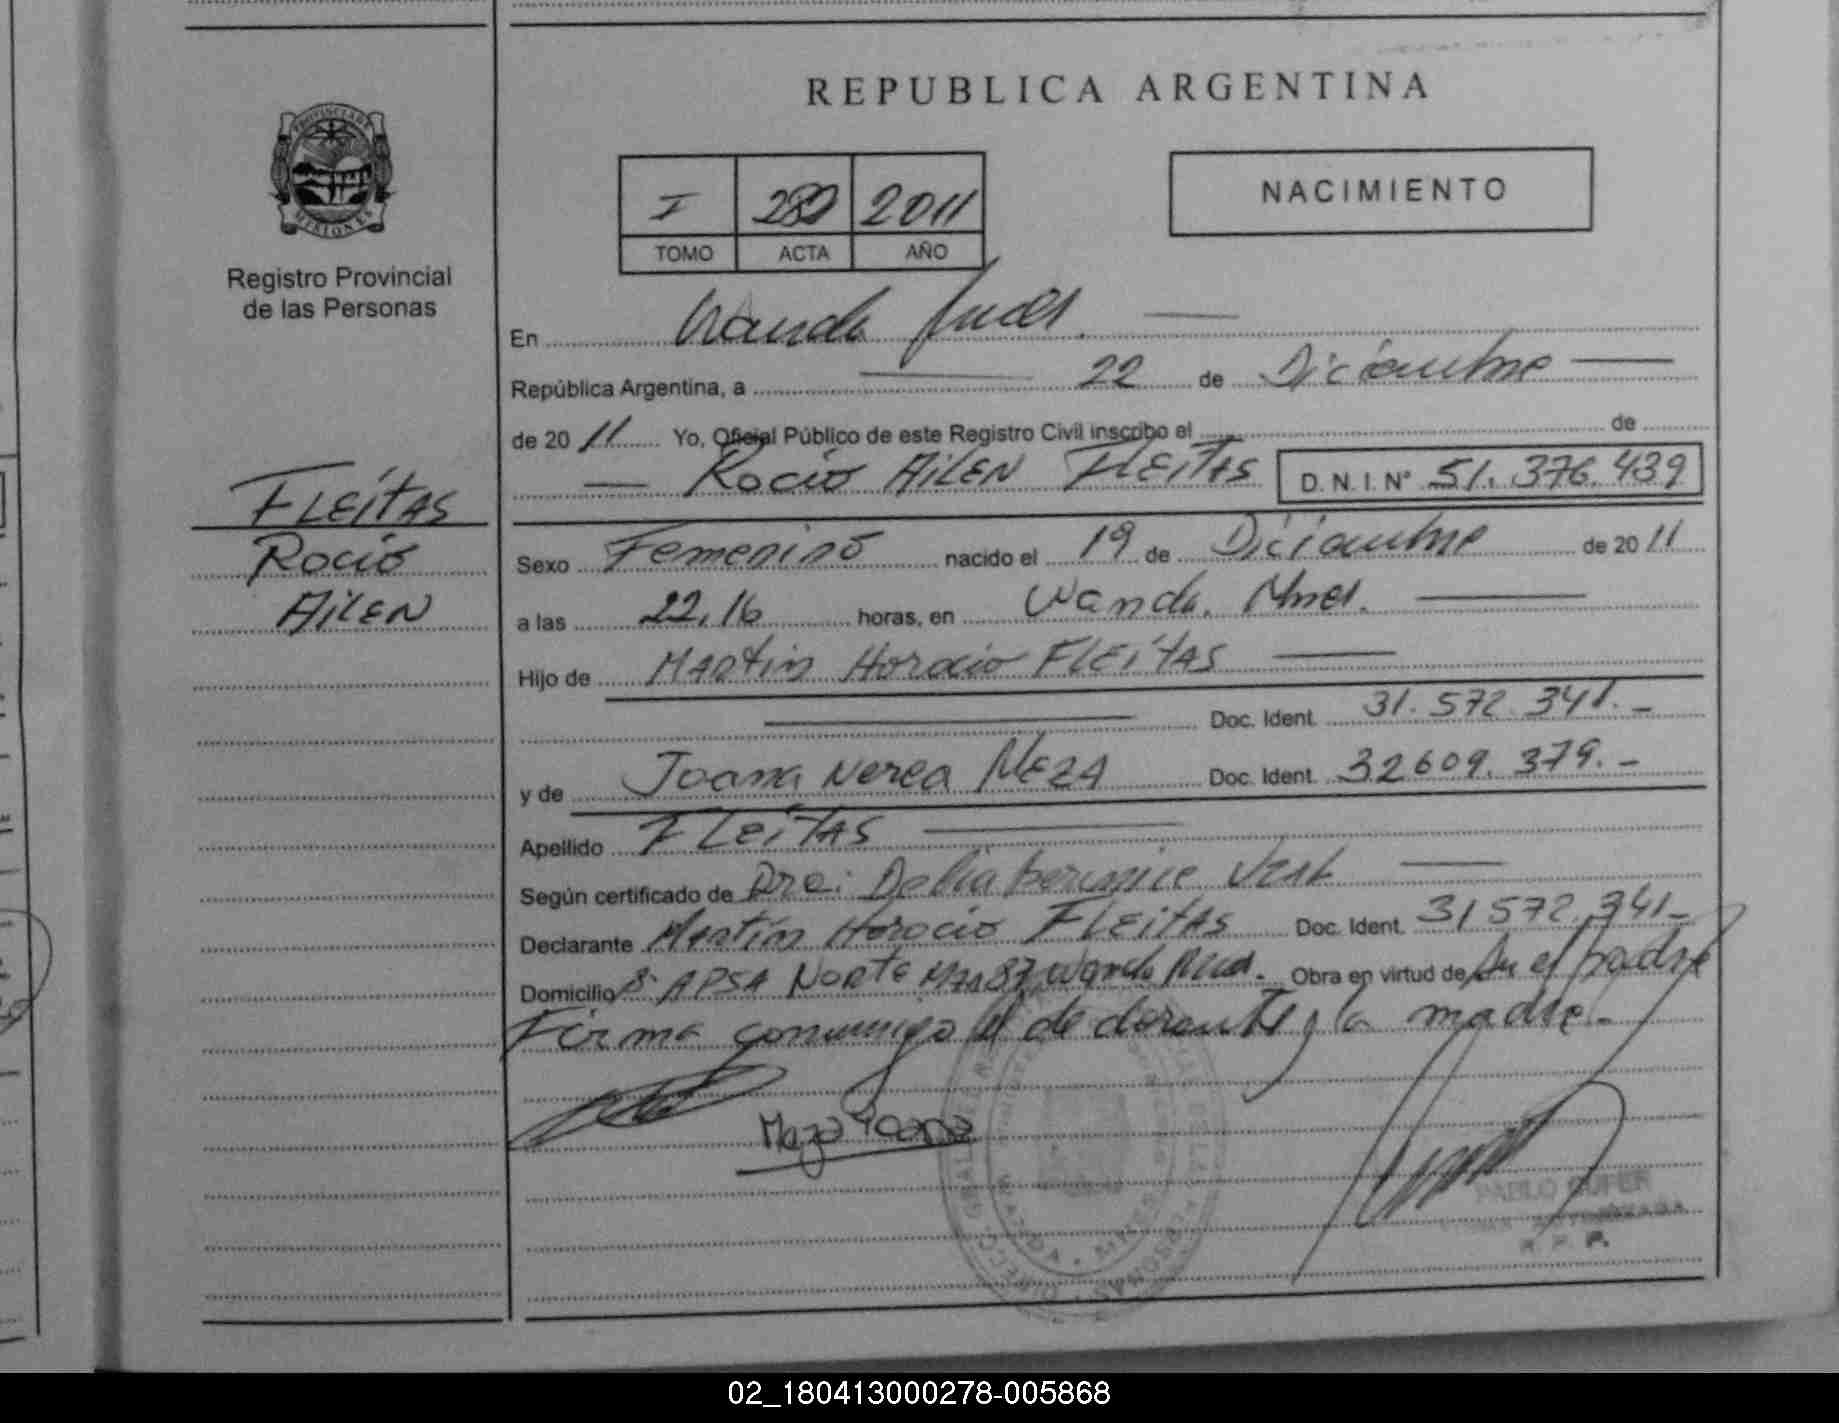 REPUBLICA ARGENTINA
I 282 2011
TOMO ACTA AÑO
NACIMIENTO
PROVINCIA DE
MISIONES
Registro Provincial
de las Personas
FLEITAS
Rocio
AILEN
En Wanda
República Argentina, a 22 de Diciembre
de 20 11 Yo, Oficial Público de este Registro Civil inscribo el de
Rocio AILEN FLEITAS D. N. I. Nº 51.376.439
Sexo Femenino nacido el 19 de Diciembre de 20 11
a las 22,16 horas, en Wanda. Mnes.
Hijo de Martin Horacio FLEITAS
Doc. Ident. 31.572.341.-
y de Joana Nerea MEZA Doc. Ident. 32609.379.-
Apellido FLEITAS
Según certificado de Dra: Delia
Declarante Martin Horacio FLEITAS Doc. Ident. 31572.341-
Domicilio Bº APSA NORTE Mza 87 Wanda Obra en virtud de Ser el padre
Firma conmigo el declarante y la madre.-
Meza Yoana
PABLO
R. P. P.
02_180413000278-005868